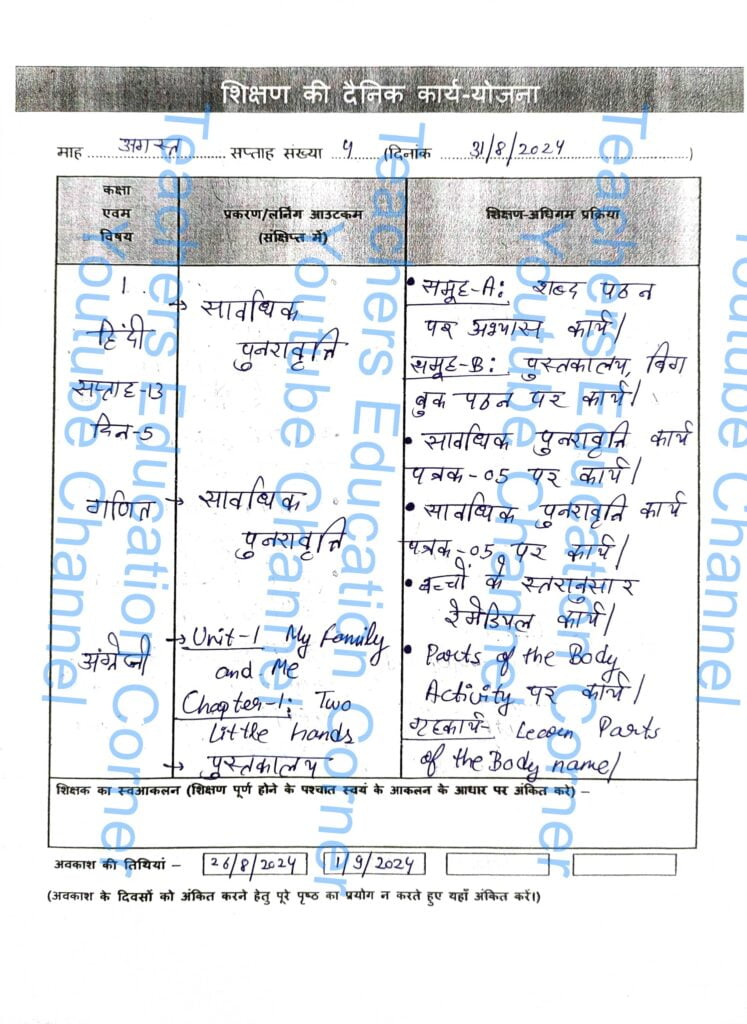 शिक्षण की दैनिक कार्य-योजना
माह अगस्त सप्ताह संख्या 4 (दिनांक 31/8/2024)
कक्षा
एवम
विषय
प्रकरण/लर्निंग आउटकम
(संक्षिप्त में)
शिक्षण-अधिगम प्रक्रिया
1
हिंदी
सप्ताह-13
दिन-5
→ सावधिक
पुनरावृत्ति
• समूह-A: शब्द पठन
पर अभ्यास कार्य/
समूह-B: पुस्तकालय, बिग
बुक पठन पर कार्य/
• सावधिक पुनरावृति कार्य
पत्रक-05 पर कार्य/
गणित
→ सावधिक
पुनरावृत्ति
• सावधिक पुनरावृति कार्य
पत्रक-05 पर कार्य/
• बच्चों के स्तरानुसार
रेमेडियल कार्य/
अंग्रेजी
→ Unit-1 My Family
and Me
Chapter-1: Two
little hands
→ पुस्तकालय
• Parts of the Body
Activity पर कार्य/
गृहकार्य- Learn Parts
of the Body name/
शिक्षक का स्वआकलन (शिक्षण पूर्ण होने के पश्चात स्वयं के आकलन के आधार पर अंकित करे) –
अवकाश की तिथियां – 26/8/2024 1/9/2024
(अवकाश के दिवसों को अंकित करने हेतु पूरे पृष्ठ का प्रयोग न करते हुए यहाँ अंकित करें।)
Teachers Education Corner
Youtube Channel
Teachers Education Corner
Youtube Channel
Teachers Education Corner
Youtube Channel